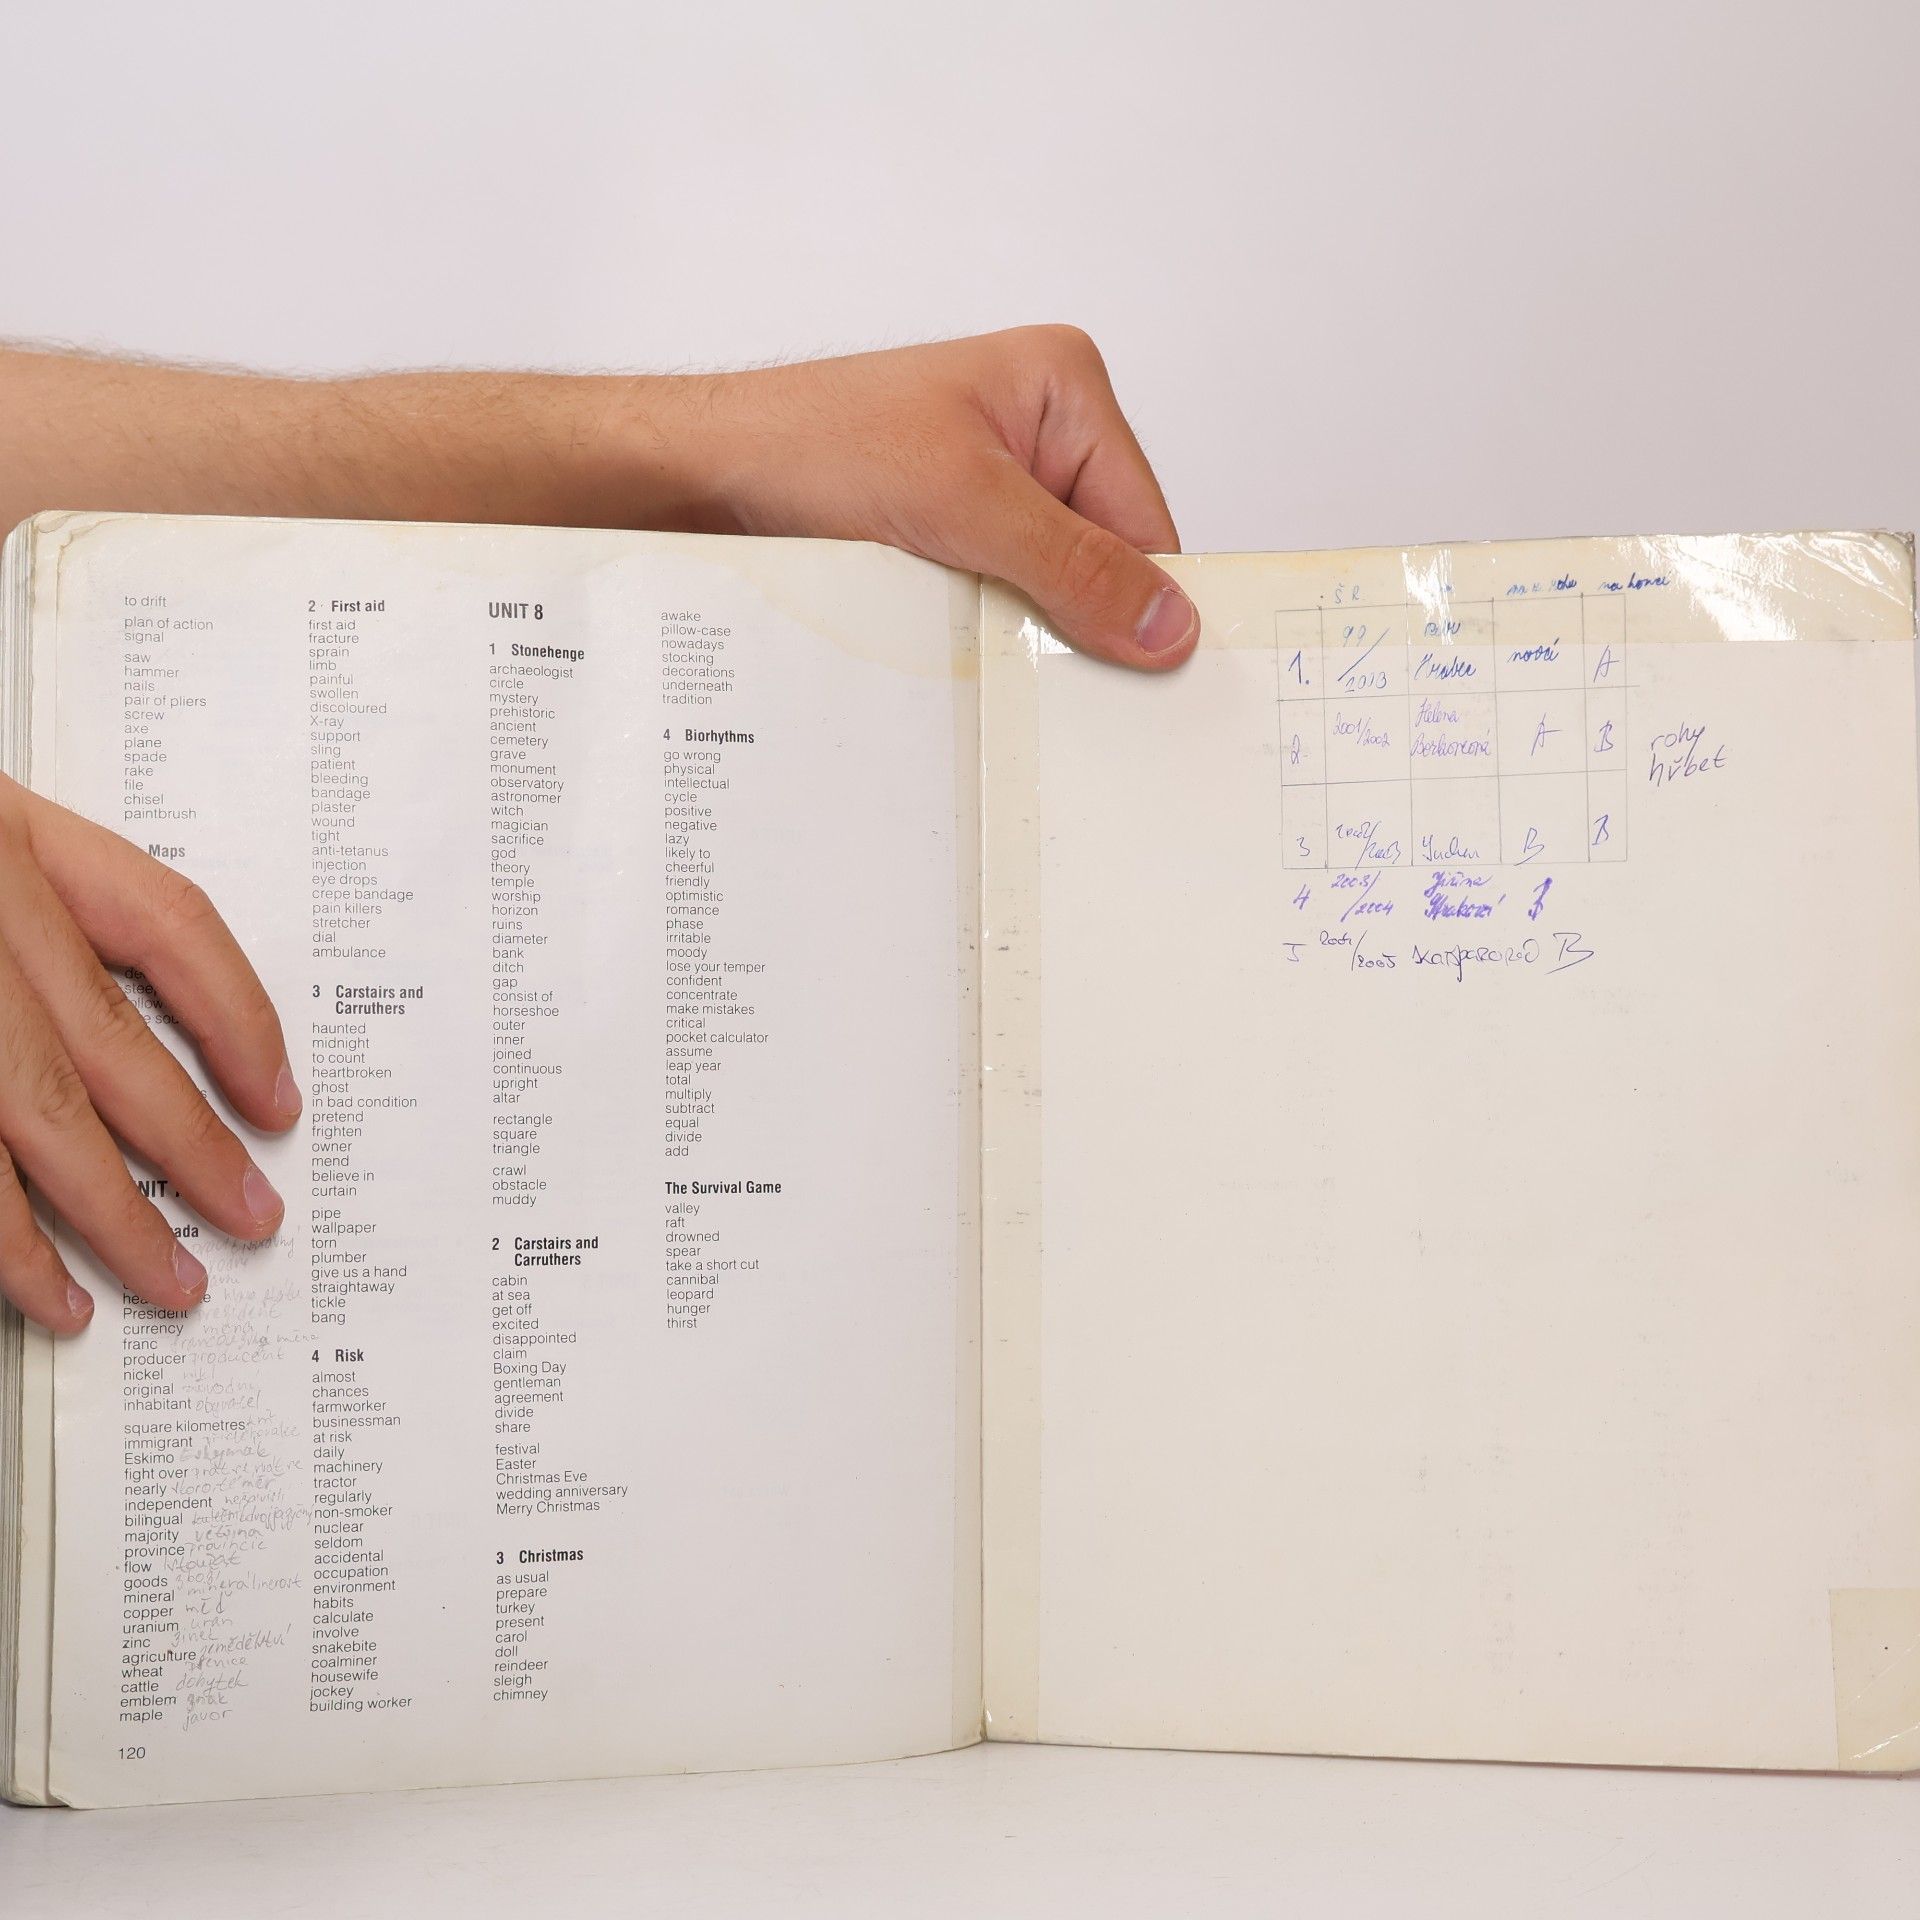 to drift
plan of action
signal
saw
hammer
nails
pair of pliers
screw
axe
plane
spade
rake
file
chisel
paintbrush
Maps
President
currency měna
franc
producer producent
nickel
original
inhabitant obyvatel
square kilometres
immigrant
Eskimo Eskymák
fight over
nearly
independent
bilingual
majority většina
province provincie
flow
goods zboží
mineral
copper měď
uranium uran
zinc zinek
agriculture zemědělství
wheat pšenice
cattle dobytek
emblem znak
maple javor
120
2 First aid
first aid
fracture
sprain
limb
painful
swollen
discoloured
X-ray
support
sling
patient
bleeding
bandage
plaster
wound
tight
anti-tetanus
injection
eye drops
crepe bandage
pain killers
stretcher
dial
ambulance
3 Carstairs and
Carruthers
haunted
midnight
to count
heartbroken
ghost
in bad condition
pretend
frighten
owner
mend
believe in
curtain
pipe
wallpaper
torn
plumber
give us a hand
straightaway
tickle
bang
4 Risk
almost
chances
farmworker
businessman
at risk
daily
machinery
tractor
regularly
non-smoker
nuclear
seldom
accidental
occupation
environment
habits
calculate
involve
snakebite
coalminer
housewife
jockey
building worker
UNIT 8
1 Stonehenge
archaeologist
circle
mystery
prehistoric
ancient
cemetery
grave
monument
observatory
astronomer
witch
magician
sacrifice
god
theory
temple
worship
horizon
ruins
diameter
bank
ditch
gap
consist of
horseshoe
outer
inner
joined
continuous
upright
altar
rectangle
square
triangle
crawl
obstacle
muddy
2 Carstairs and
Carruthers
cabin
at sea
get off
excited
disappointed
claim
Boxing Day
gentleman
agreement
divide
share
festival
Easter
Christmas Eve
wedding anniversary
Merry Christmas
3 Christmas
as usual
prepare
turkey
present
carol
doll
reindeer
sleigh
chimney
awake
pillow-case
nowadays
stocking
decorations
underneath
tradition
4 Biorhythms
go wrong
physical
intellectual
cycle
positive
negative
lazy
likely to
cheerful
friendly
optimistic
romance
phase
irritable
moody
lose your temper
confident
concentrate
make mistakes
critical
pocket calculator
assume
leap year
total
multiply
subtract
equal
divide
add
The Survival Game
valley
raft
drowned
spear
take a short cut
cannibal
leopard
hunger
thirst
Š R. na konci
1. 99/ nová A
2. 2001/2002 Helena A B
rohy
hřbet
3 B B
4 2003/2004 Jiřina
5 /2005 B